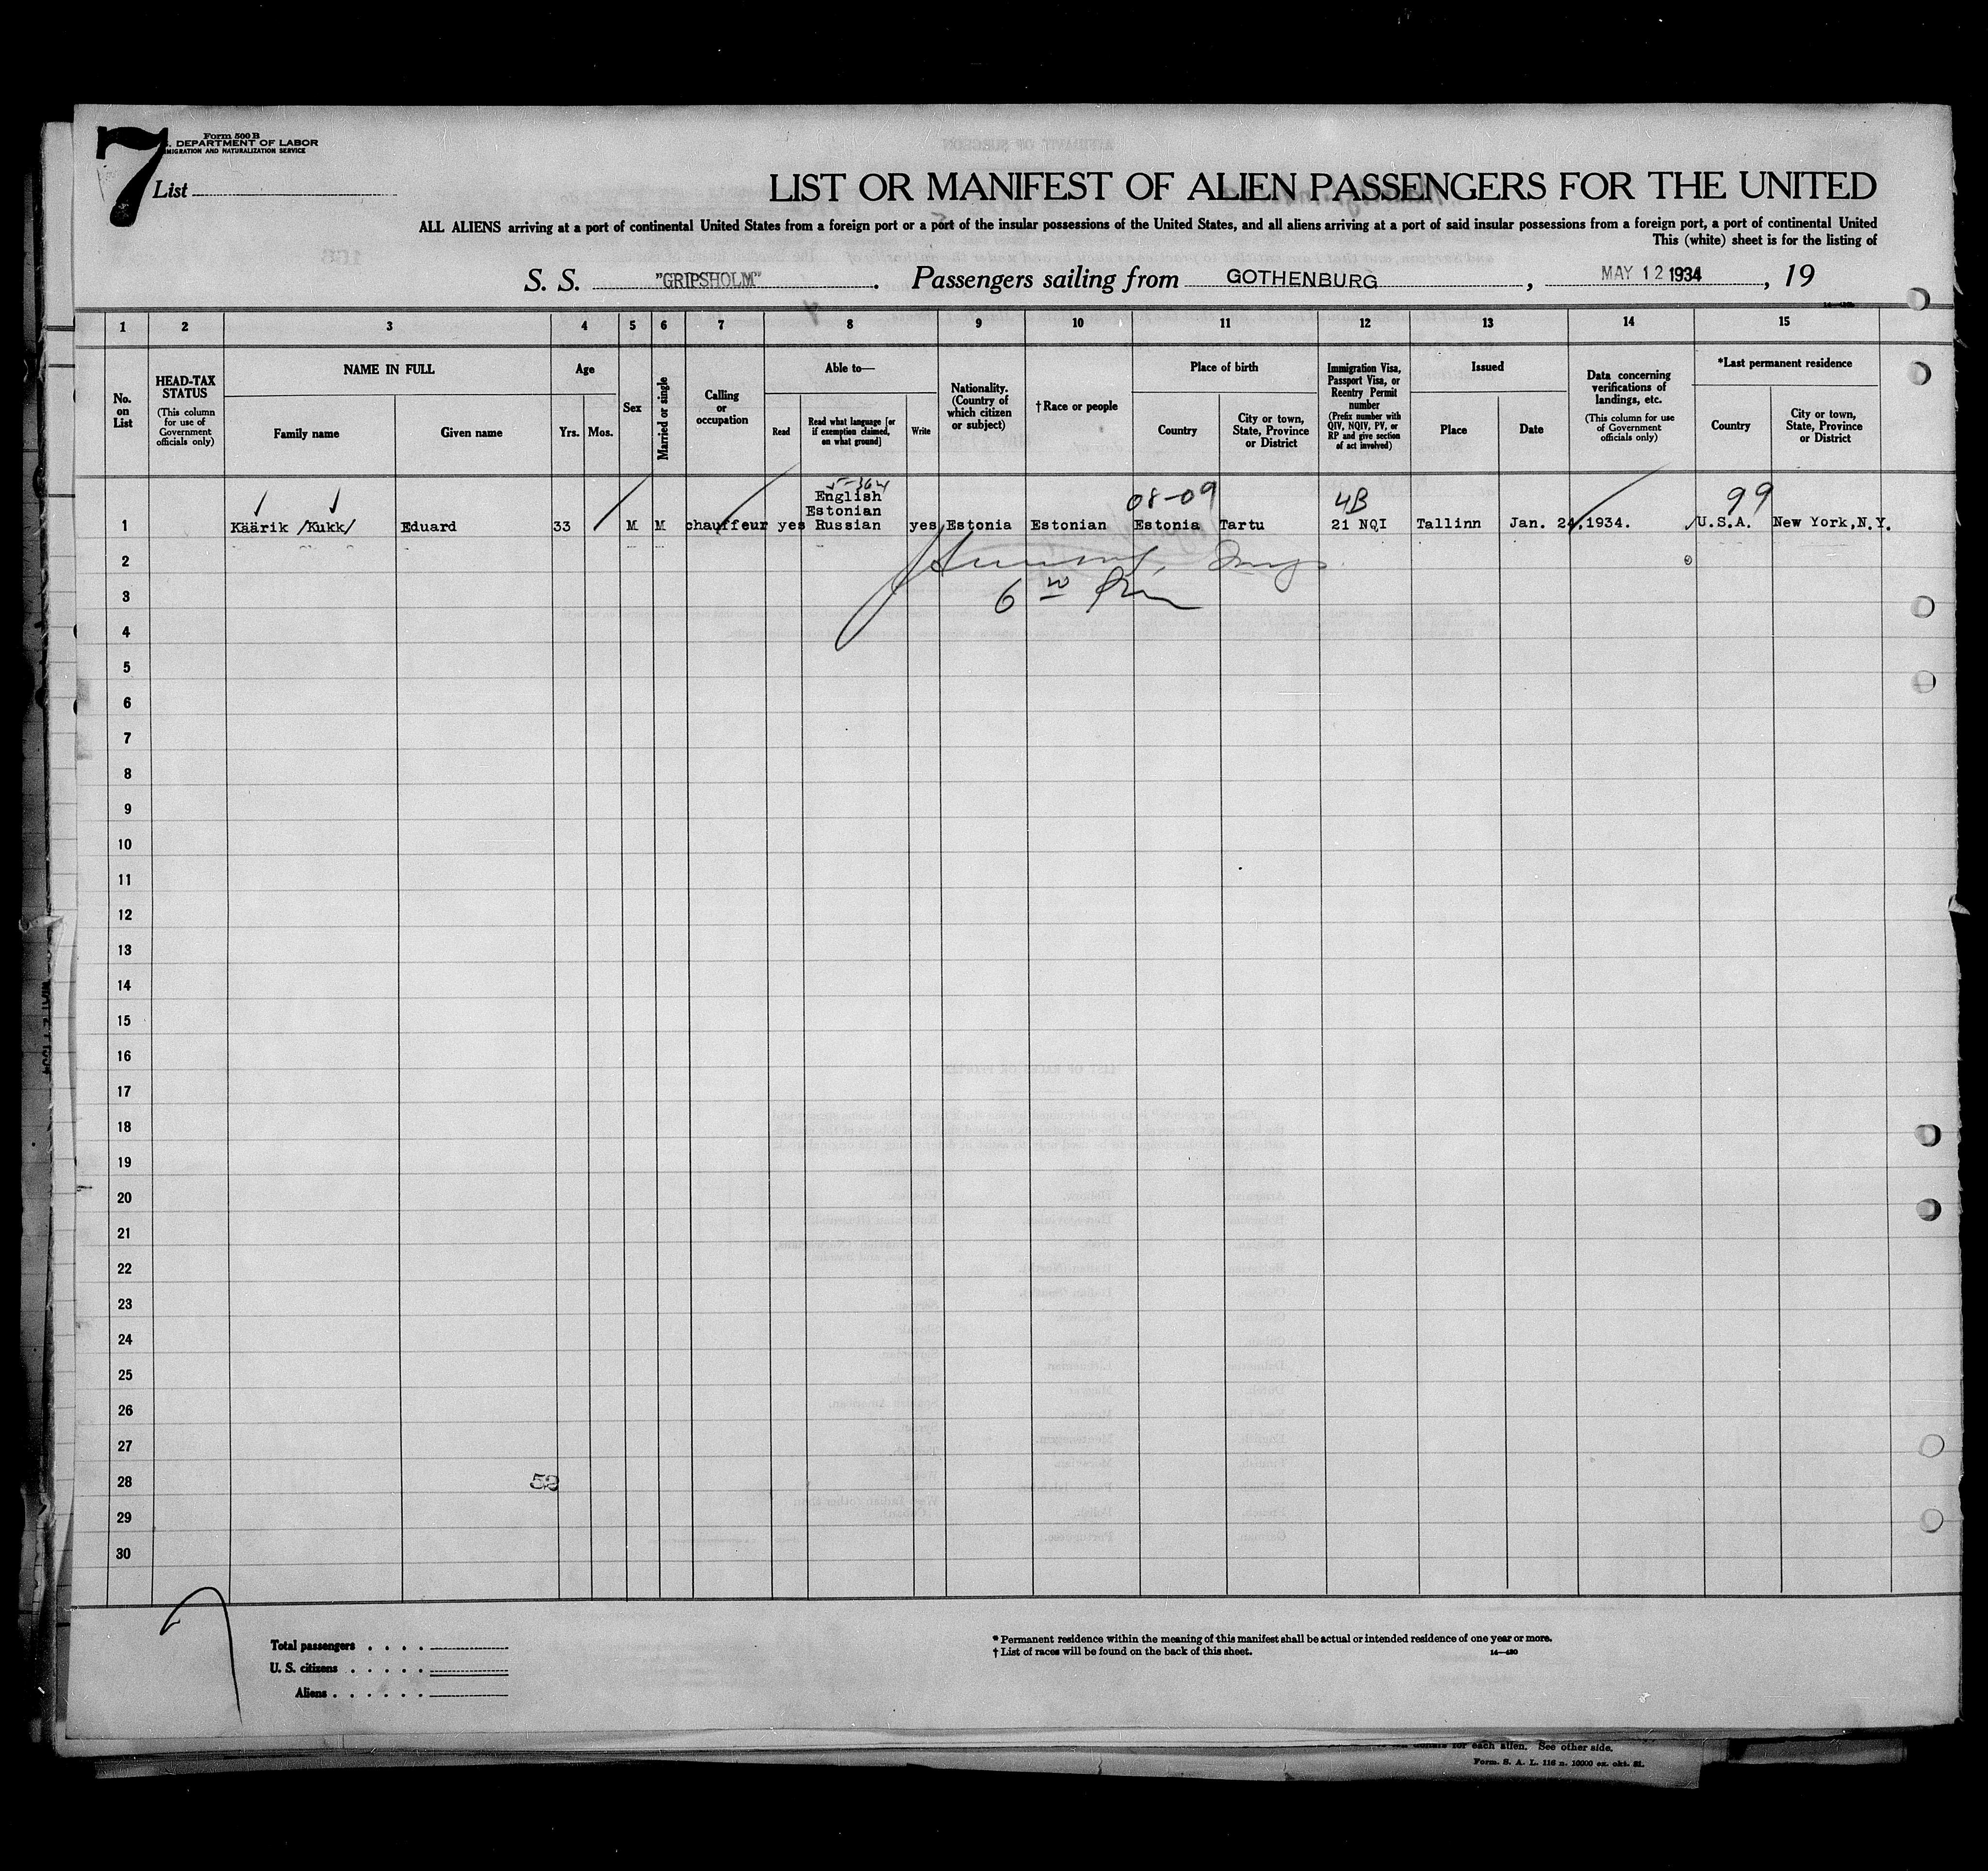 7
Form 500 B
. DEPARTMENT OF LABOR
MIGRATION AND NATURALIZATION SERVICE
List
LIST OR MANIFEST OF ALIEN PASSENGERS FOR THE UNITED
ALL ALIENS arriving at a port of continental United States from a foreign port or a port of the insular possessions of the United States, and all aliens arriving at a port of said insular possessions from a foreign port, a port of continental United
This (white) sheet is for the listing of
S. S. "GRIPSHOLM". Passengers sailing from GOTHENBURG, MAY 12 1934, 19
1 2 3 4 5 6 7 8 9 10 11 12 13 14 15
No. on List
HEAD-TAX STATUS
(This column for use of Government officials only)
NAME IN FULL
Family name
Given name
Age
Yrs. Mos.
Sex
Married or single
Calling or occupation
Able to—
Read
Read what language [or if exemption claimed, on what ground]
Write
Nationality. (Country of which citizen or subject)
† Race or people
Place of birth
Country
City or town, State, Province or District
Immigration Visa, Passport Visa, or Reentry Permit number
(Prefix number with QIV, NQIV, PV, or RP and give section of act involved)
Issued
Place
Date
Data concerning verifications of landings, etc.
(This column for use of Government officials only)
*Last permanent residence
Country
City or town, State, Province or District
08-09 4B 99
English
Estonian
1 Käärik /Kukk/ Eduard 33 M M chauffeur yes Russian yes Estonia Estonian Estonia Tartu 21 NQI Tallinn Jan. 24,1934. U.S.A. New York,N.Y.
2
3
4
5
6
7
8
9
10
11
12
13
14
15
16
17
18
19
20
21
22
23
24
25
26
27
28
29
30
7
Total passengers . . . .
U. S. citizens . . . . .
Aliens . . . . . .
* Permanent residence within the meaning of this manifest shall be actual or intended residence of one year or more.
† List of races will be found on the back of this sheet.
14—480
for each alien. See other side.
Form. S. A. L. 116 n. 10000 ex. okt. 31.